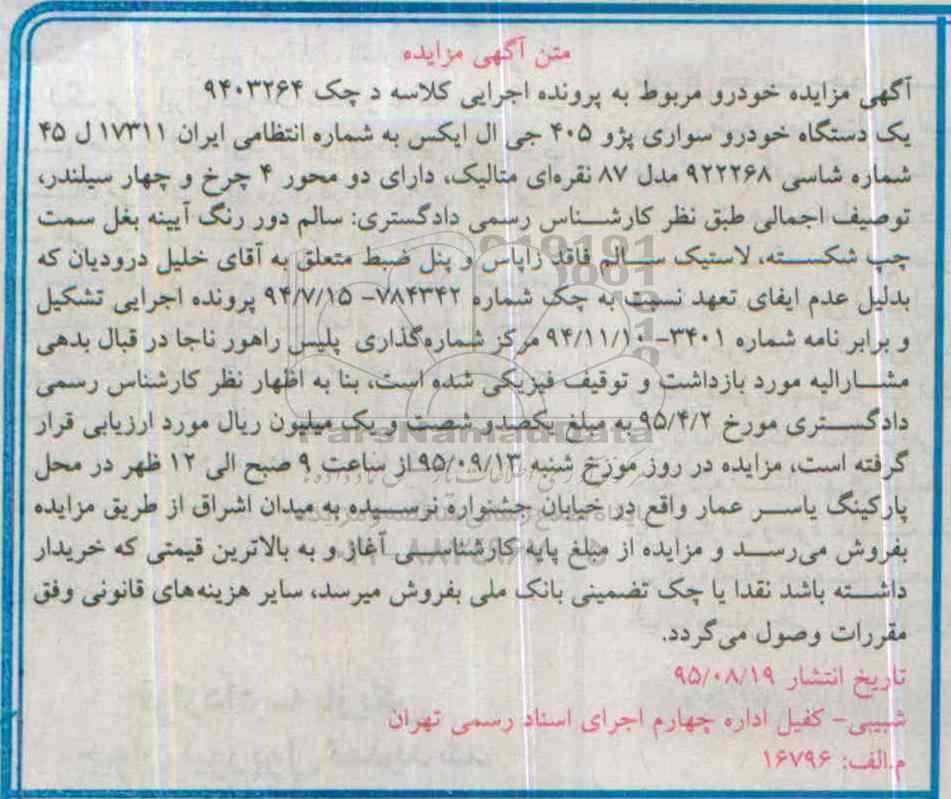 متن آگهی مزایده
آگهی مزایده خودرو مربوط به پرونده اجرایی کلاسه د چک ۹۴۰۳۲۶۴
یک دستگاه خودرو سواری پژو ۴۰۵ جی ال ایکس به شماره انتظامی ایران ۱۷۳۱۱ ل ۴۵
شماره شاسی ۹۲۲۲۶۸ مدل ۸۷ نقره‌ای متالیک، دارای دو محور ۴ چرخ و چهار سیلندر،
توصیف اجمالی طبق نظر کارشناس رسمی دادگستری: سالم دور رنگ آیینه بغل سمت
چپ شکسته، لاستیک سالم فاقد زاپاس و پنل ضبط متعلق به آقای خلیل درودیان که
بدلیل عدم ایفای تعهد نسبت به چک شماره ۷۸۴۳۴۲- ۹۴/۷/۱۵ پرونده اجرایی تشکیل
و برابر نامه شماره ۳۴۰۱-۹۴/۱۱/۱۰ مرکز شماره‌گذاری پلیس راهور ناجا در قبال بدهی
مشارالیه مورد بازداشت و توقیف فیزیکی شده است، بنا به اظهار نظر کارشناس رسمی
دادگستری مورخ ۹۵/۴/۲ به مبلغ یکصدو شصت و یک میلیون ریال مورد ارزیابی قرار
گرفته است، مزایده در روز مورخ شنبه ۹۵/۰۹/۱۳ از ساعت ۹ صبح الی ۱۲ ظهر در محل
پارکینگ یاسر عمار واقع در خیابان جشنواره نرسیده به میدان اشراق از طریق مزایده
بفروش می‌رسد و مزایده از مبلغ پایه کارشناسی آغاز و به بالاترین قیمتی که خریدار
داشته باشد نقدا یا چک تضمینی بانک ملی بفروش میرسد، سایر هزینه‌های قانونی وفق
مقررات وصول می‌گردد.
تاریخ انتشار ۹۵/۰۸/۱۹
شبیبی- کفیل اداره چهارم اجرای اسناد رسمی تهران
م.الف: ۱۶۷۹۶
ParsNamadData